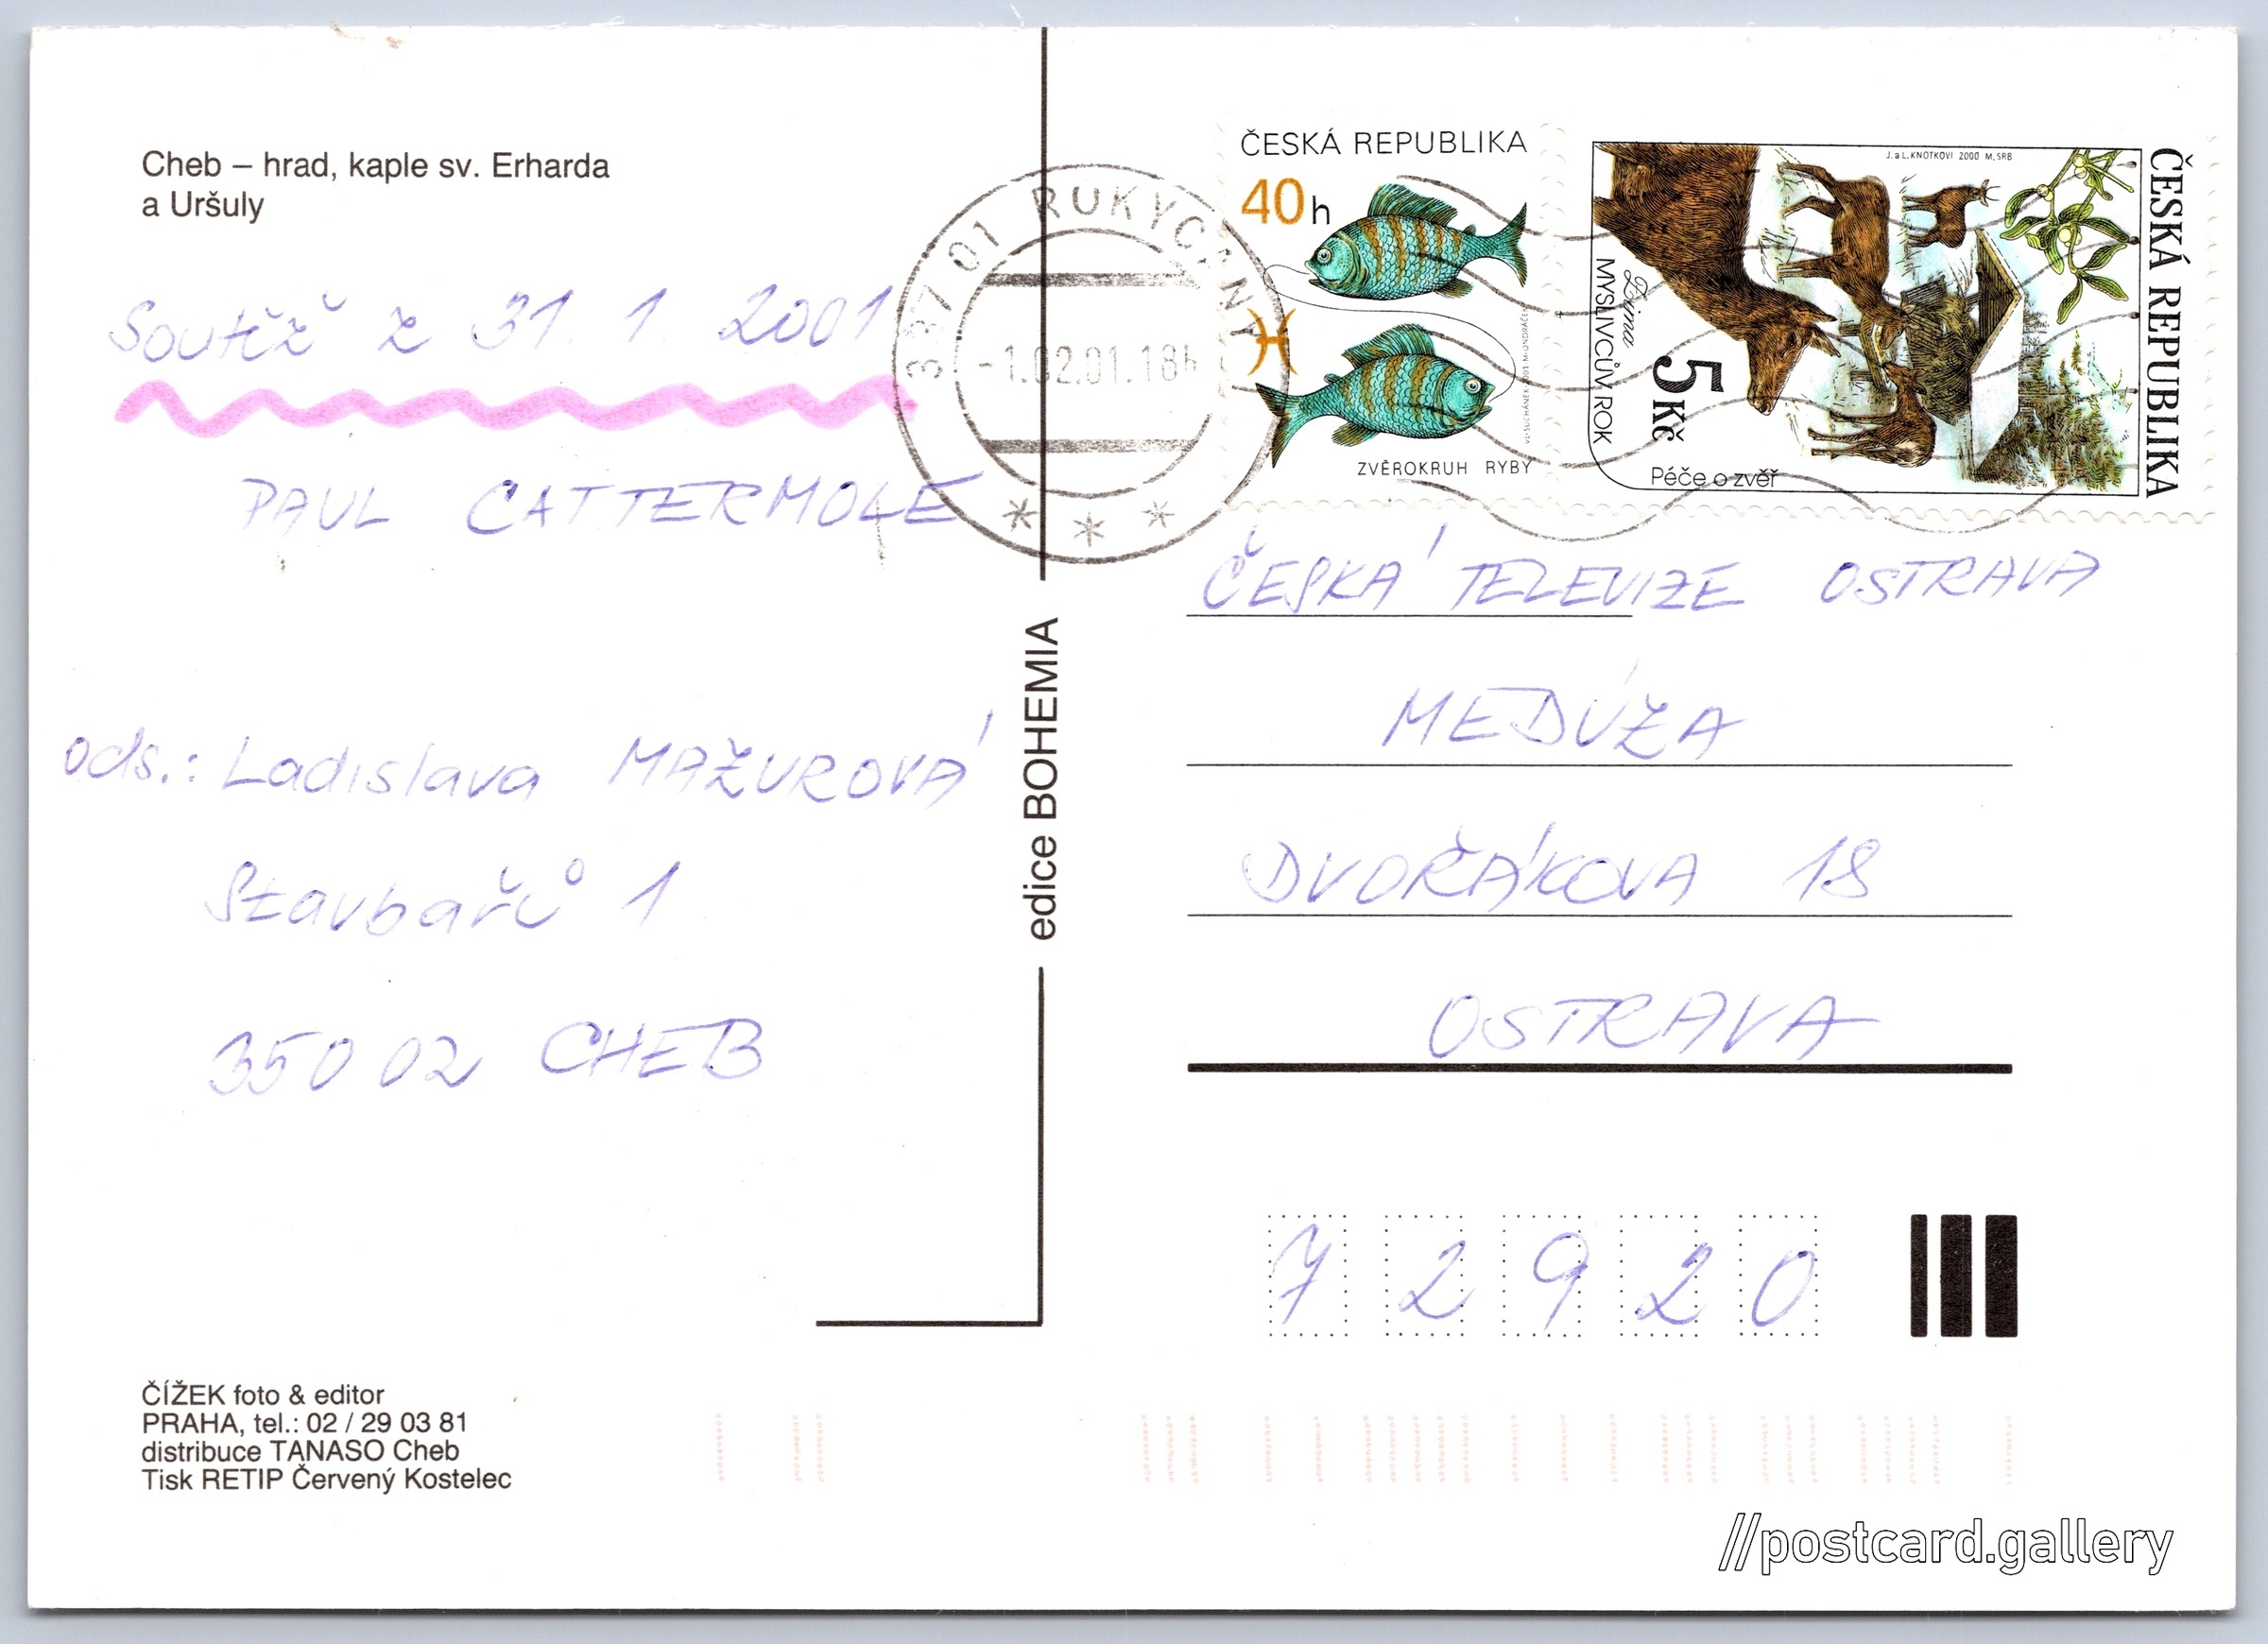 Cheb – hrad, kaple sv. Erharda
a Uršuly
Soutěž z 31. 1 2001
PAUL CATTERMOLE
ods.: Ladislava MAŽUROVÁ
Stavbařů 1
350 02 CHEB
ČÍŽEK foto & editor
PRAHA, tel.: 02 / 29 03 81
distribuce TANASO Cheb
Tisk RETIP Červený Kostelec
edice BOHEMIA
337 01 ROKYCANY
-1.02.01.18h
ČESKÁ REPUBLIKA
40h
ZVĚROKRUH RYBY
ČESKÁ REPUBLIKA
J. a L. KNOTKOVI 2000 M. SRB
Zima
MYSLIVCŮV ROK
5Kč
Péče o zvěř
ČESKÁ TELEVIZE OSTRAVA
MEDÚZA
DVOŘÁKOVA 18
OSTRAVA
72920
//postcard.gallery